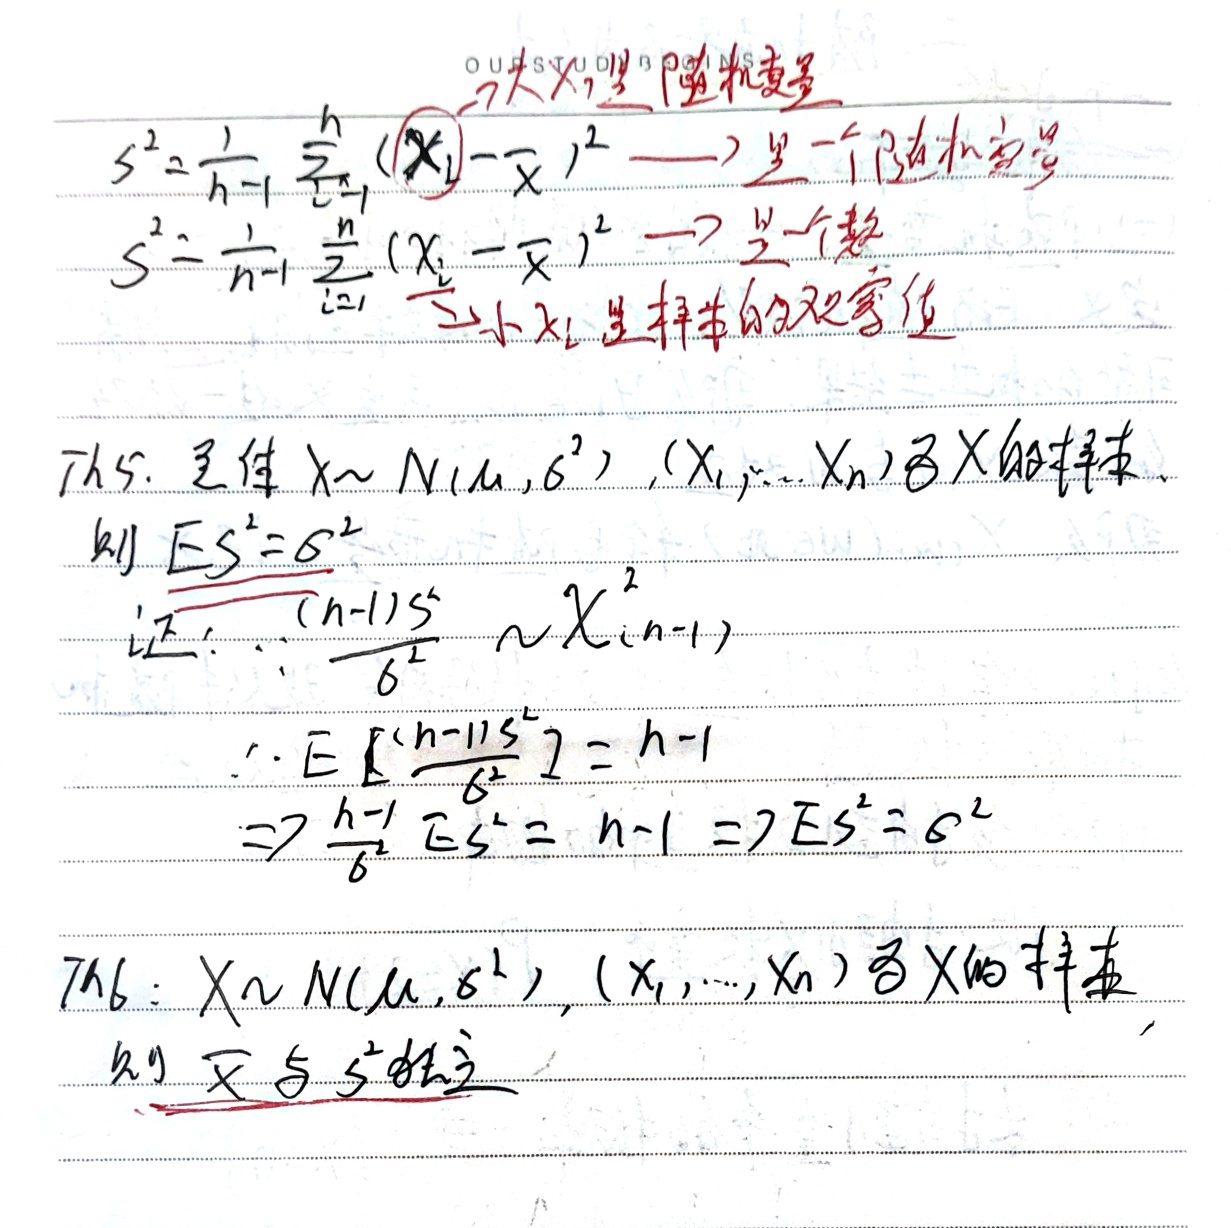 OURSTUDYBEGINS
→大Xᵢ是随机变量
S² = 1/(n-1) Σ_{i=1}^{n} (Xᵢ - X̄)² → 是一个随机变量
s² = 1/(n-1) Σ_{i=1}^{n} (xᵢ - x̄)² → 是一个数
→小xᵢ是样本的观察值
Th5. 总体 X~N(μ,σ²), (X₁,... Xn)为X的样本.
则 ES²=σ²
证: ∵ (n-1)S²/σ² ~ χ²(n-1)
∴ E[(n-1)S²/σ²] = n-1
=> (n-1)/σ² ES² = n-1 => ES² = σ²
Th6: X~N(μ,σ²), (X₁,...,Xn)为X的样本,
则 X̄ 与 S² 独立